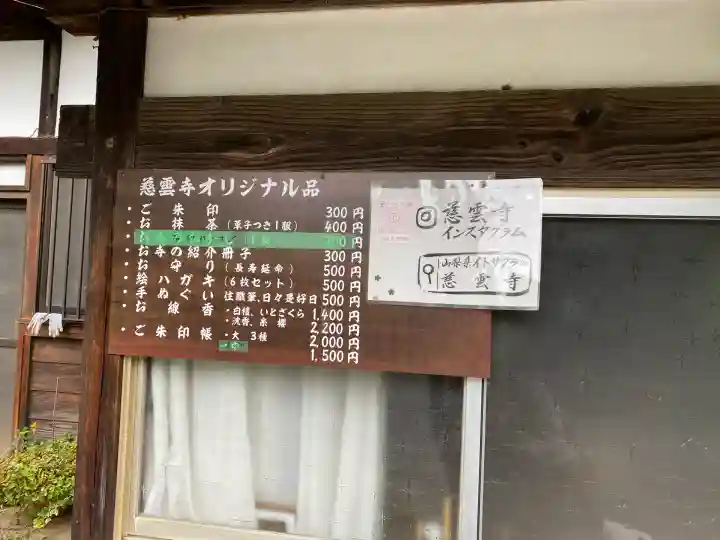 慈雲寺オリジナル品
・ご朱印 300円
・お抹茶(菓子つき1服) 400円
・お寺の紹介冊子 300円
・お守り(長寿延命) 500円
・絵ハガキ(6枚セット) 500円
・手ぬぐい 住職筆、日々是好日 500円
・お線香 ・白檀、いとざくら 1,400円
・沈香、糸櫻 2,200円
・ご朱印帳 ・大 3種 2,000円
1,500円
慈雲寺
インスタグラム
山梨県イトザクラ
慈雲寺